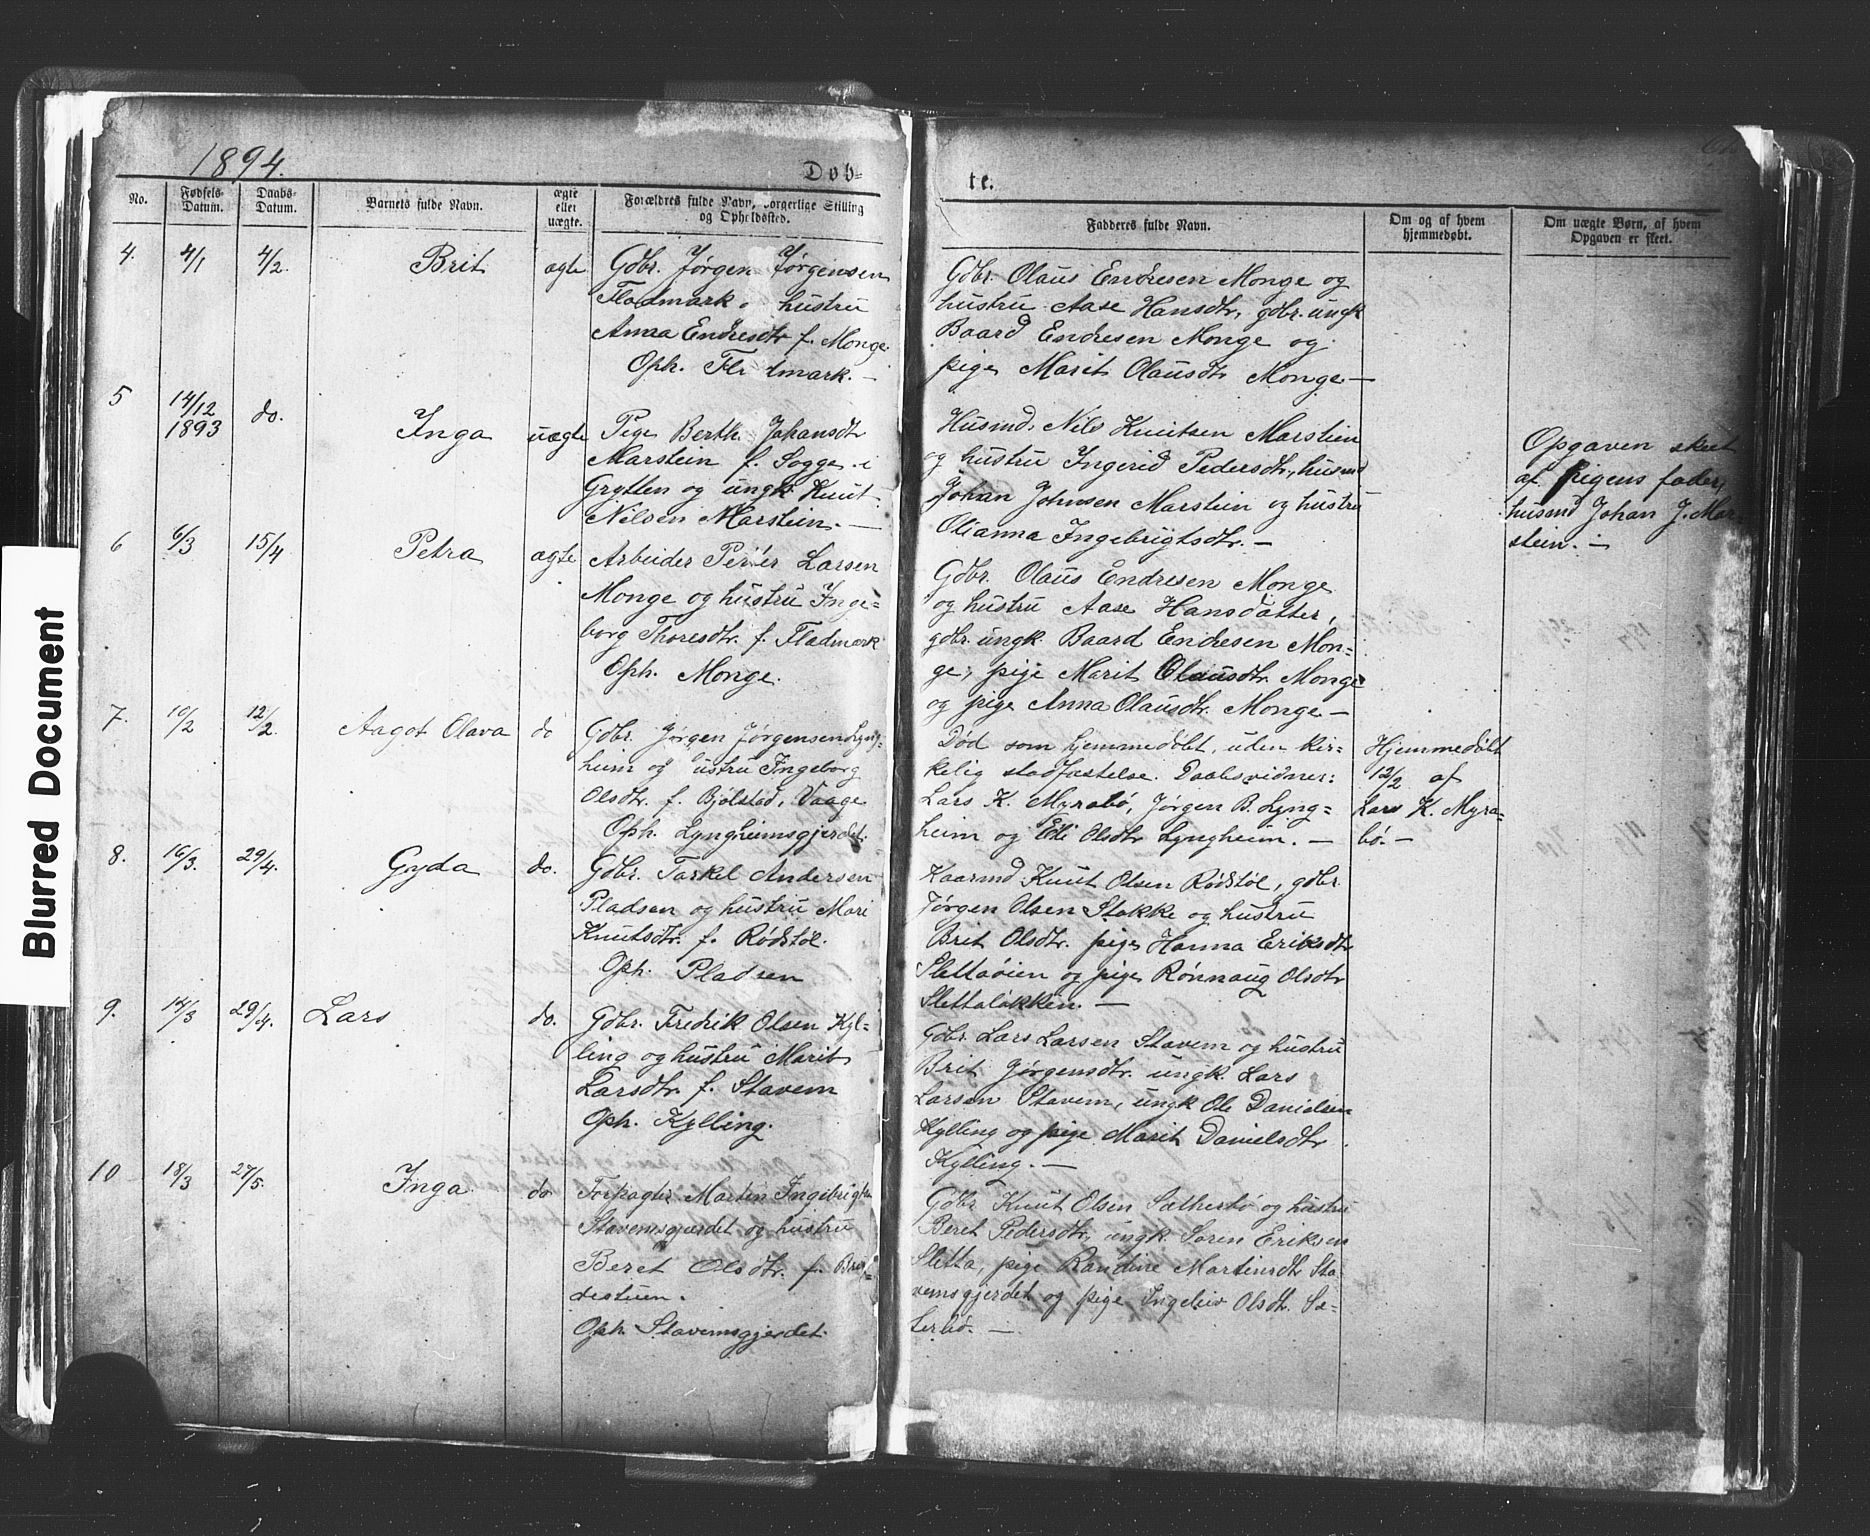 Blurred Document
1894.
Døb=
te.
No.
Fødsels-
Datum.
Daabs-
Datum.
Barnets fulde Navn.
ægte
eller
uægte.
Forældres fulde Navn, borgerlige Stilling
og Opholdssted.
Fadderes fulde Navn.
Om og af hvem
hjemmedøbt.
Om uægte Børn, af hvem
Opgaven er skeet.
4. 4/1 4/2. Brit ægte
Gdbr. Jørgen Jørgensen
Fladmark. hustru
Anna Endresdtr f. Monge
Oph. Fladmark. —
Gdbr. Olaus Endresen Monge og
hustru Aase Hansdtr, gdbr. ungk
Baard Endresen Monge og
pige Marit Olausdtr Monge —
5 14/12 1893 do. Inga uægte
Pige Berth. Johansdtr
Marstein f. Sogge i
Grytten og ungk Knut
Nilsen Marstein. —
Husmd. Nils Knutsen Marstein
og hustru Ingerid Pedersdtr., husmd
Johan Johnsen Marstein og hustru
Olianna Ingebrigtsdtr. —
Opgaven skeet
af pigens fader,
husmd Johan J. Mar-
stein. —
6 6/3 15/4 Petra ægte
Arbeider Peder Larsen
Monge og hustru Inge=
borg Thoresdtr. f. Fladmark
Oph. Monge.
Gdbr. Olaus Endresen Monge
og hustru Aase Hansdatter,
gdbr. ungk. Baard Endresen Mon=
ge, pige Marit Olausdtr. Monge
og pige Anna Olausdtr. Monge —
7. 10/2 12/2. Aagot Olava do
Gdbr. Jørgen Jørgensen Lyng-
heim og hustru Ingeborg
Olsdtr. f. Bjølstad, Vaage
Oph. Lyngheimsgjerdet.
Død som hjemmedøbt, uden kir-
kelig stadfæstelse. Daabsvidner:
Lars K. Myrabø, Jørgen B. Lyng=
heim og Eli Olsdtr Lyngheim. —
Hjemmedøbt
12/2 af
Lars K. Myra-
bø. —
8. 16/3. 29/4. Gyda do.
Gdbr. Torkel Andersen
Pladsen og hustru Mari
Knutsdtr. f. Rødstøl.
Oph. Pladsen
Kaarmd Knut Olsen Rødstøl, gdbr.
Jørgen Olsen Stokke og hustru
Brit Olsdtr. pige Hanna Eriksdtr
Slettaøien og pige Rønnaug Olsdtr
Slettaløkken. —
9. 14/3 29/4. Lars do.
Gdbr. Fredrik Olsen Kyl-
ling og hustru Marit
Larsdtr. f. Stavem
Oph. Kylling.
Gdbr Lars Larsen Stavem og hustru
Brit Jørgensdtr. ungk. Lars
Larsen Stavem, ungk Ole Danielsen
Kylling og pige Marit Danielsdtr
Kylling. —
10 18/3 27/5. Inga do
Forpagter Martin Ingebrigtsen
Stavemsgjerdet og hustru
Beret Olsdtr. f.
destuen.
Oph. Stavemsgjerdet.
Gdbr Knut Olsen Sætherbø og hustru
Beret Pedersdtr, ungk Søren Eriksen
Sletta, pige Randine Martinsdtr Sta
vemsgjerdet og pige Ingeleiv Olsdtr. Sæ-
terbø. —